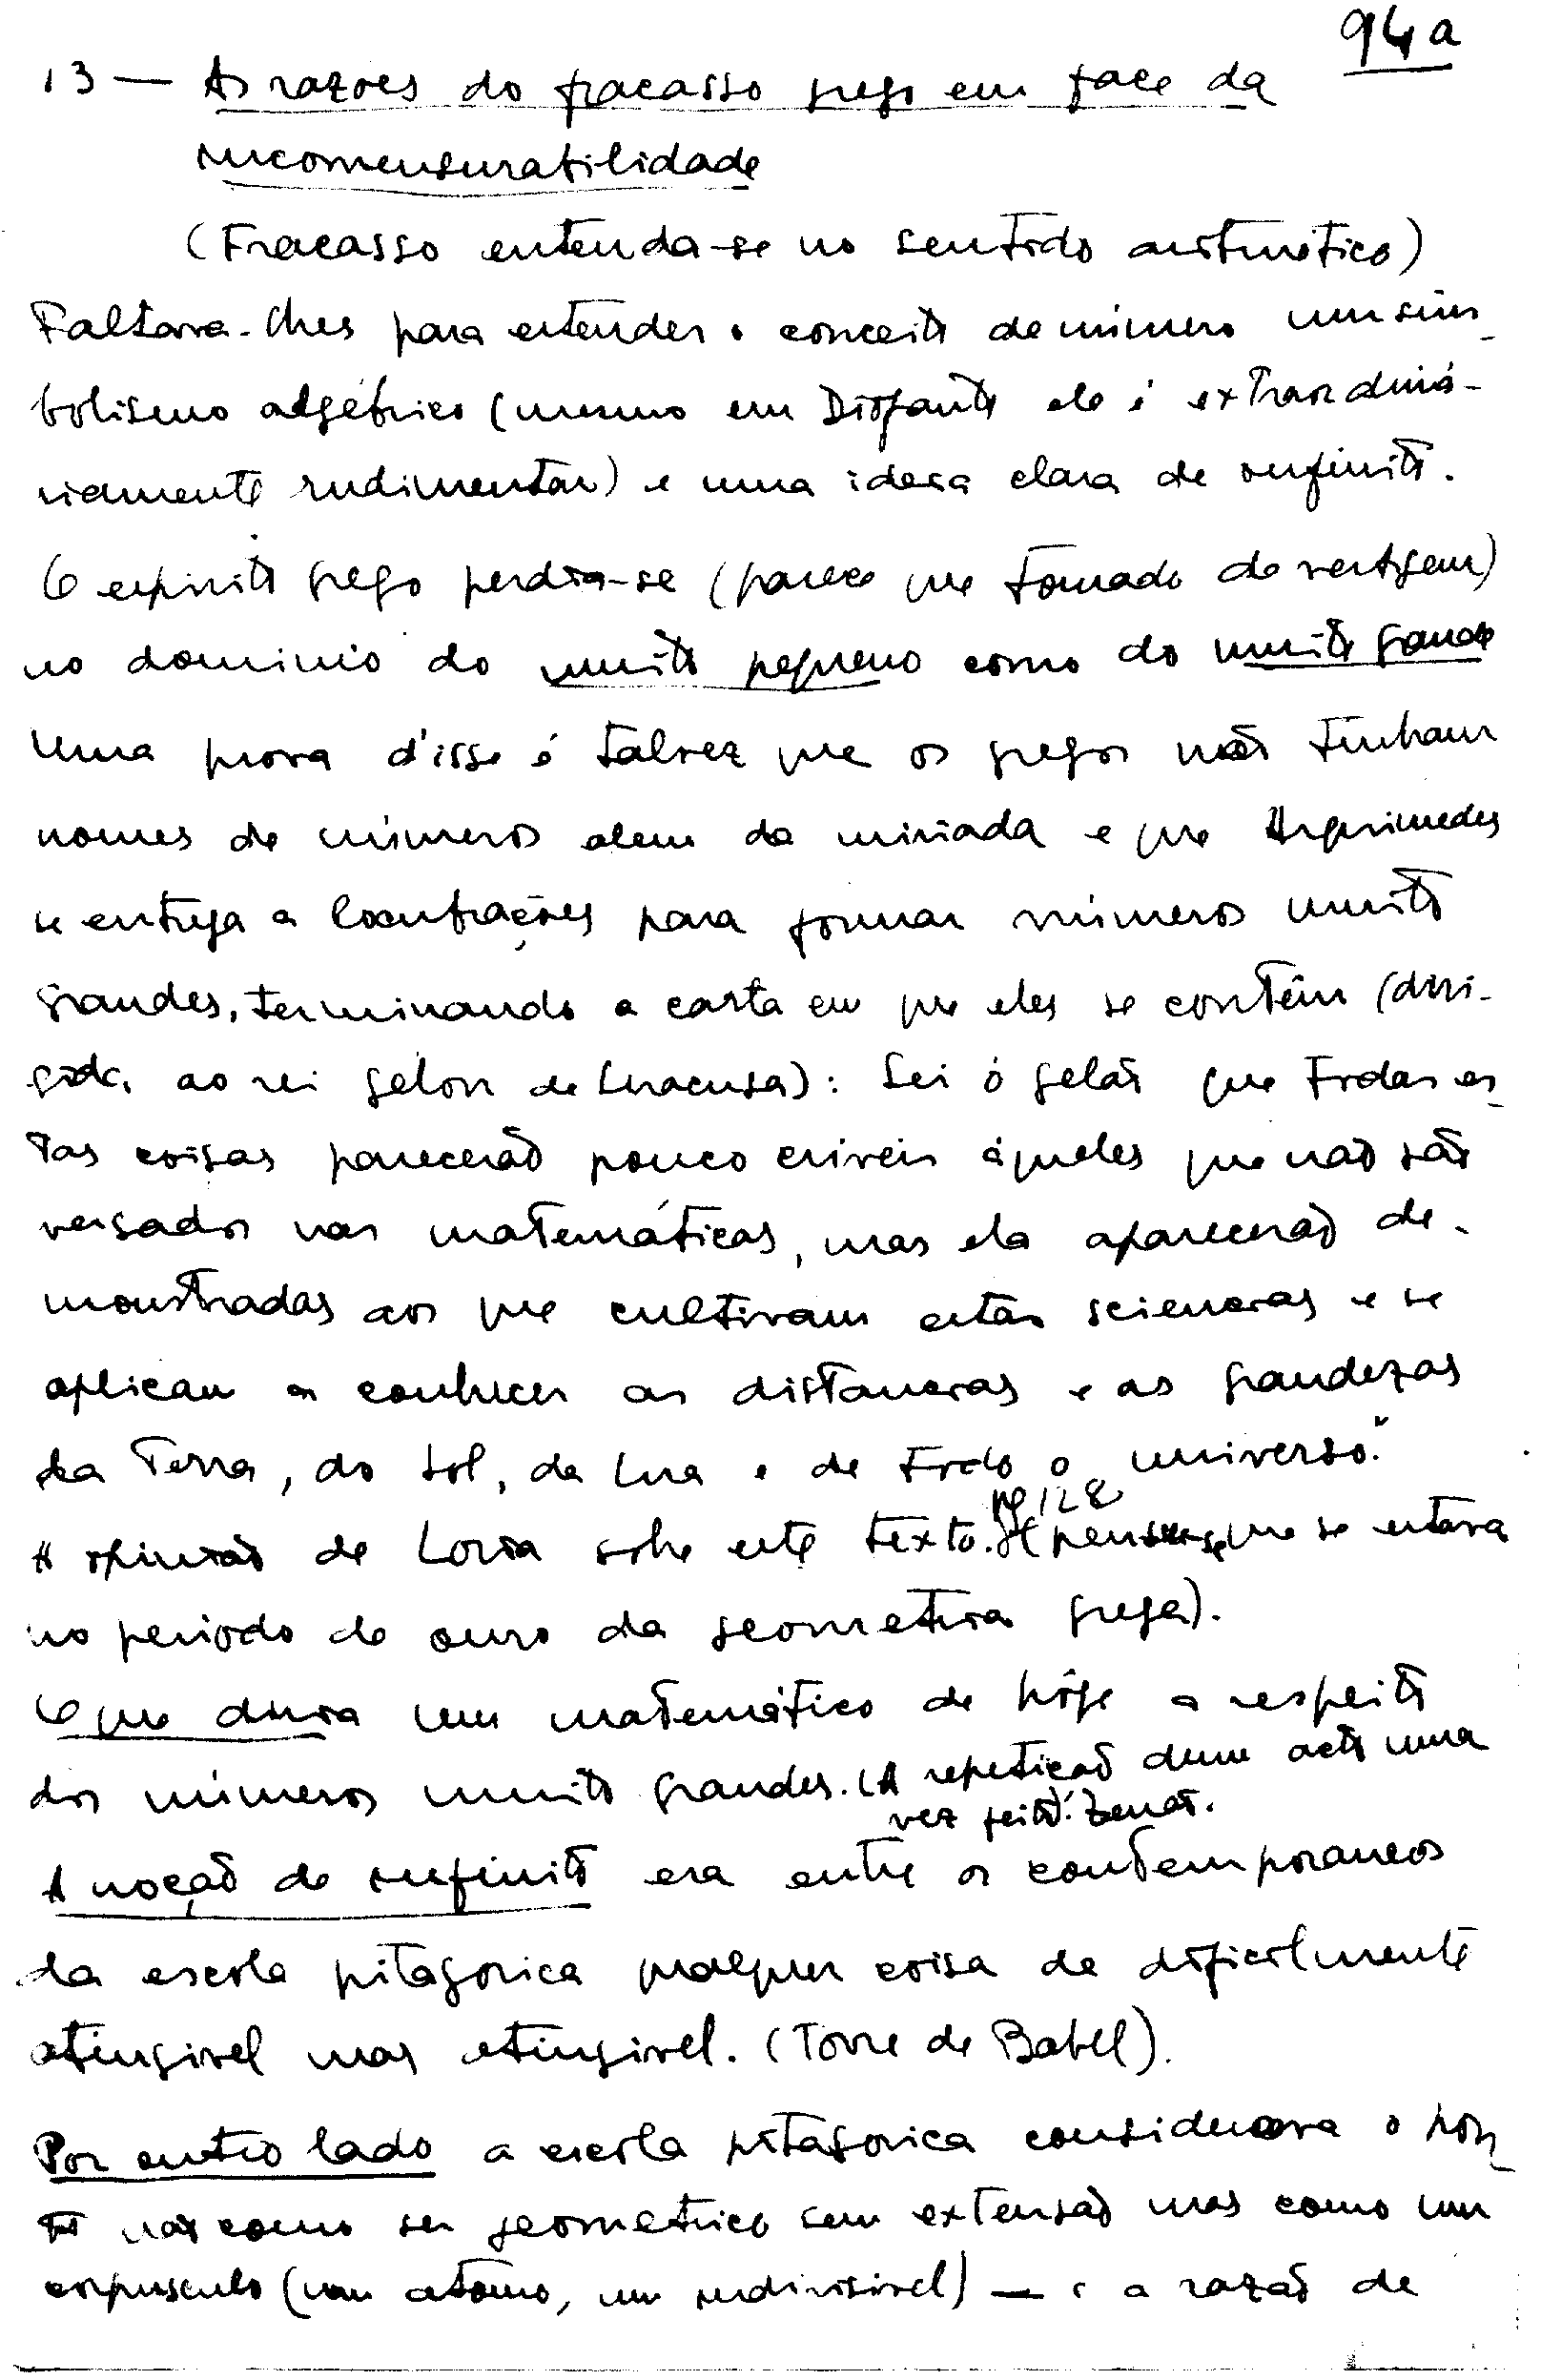 94a
13 — As razões do fracasso grego em face da
incomensurabilidade
(Fracasso entenda-se no sentido aritmético)
Faltava-lhes para entender o conceito de número um sim-
bolismo algébrico (mesmo em Diofanto ele é extraordiná-
riamente rudimentar) e uma ideia clara de infinito.
O espirito grego perdia-se (parece que tomado de vertigem)
no dominio do muito pequeno como do muito grande
Uma prova d'isso é talvez que os gregos não tinham
nomes de números alem da miriada e que Arquimedes
se entrega a locubrações para formar números muito
grandes, terminando a carta em que eles se contêm (diri-
gida ao rei Gelon de Siracusa): Sei ó Gelão que todas es-
tas coisas parecerão pouco criveis áqueles que não são
versados nas matemáticas, mas ela aparecerão de-
monstradas aos que cultivam estas sciencias e se
aplicam a conhecer as distancias e as grandezas
da Terra, do Sol, da Lua e de todo o universo."
pg 128
A opinião de Loria sobre este texto. (pense-se que se estava
no periodo de ouro da geometria grega).
O que diria um matemático de hôje a respeito
dos números muito grandes. (A repetição dum acto uma
vez feito). Zenão.
A noção de infinito era entre os contemporaneos
da escola pitagorica qualquer coisa de dificilmente
atingivel mas atingivel. (Torre de Babel).
Por outro lado a escola pitagorica considerava o pon-
to não como ser geometrico sem extensão mas como um
corpusculo (um atomo, um indivisivel) — e a razão de